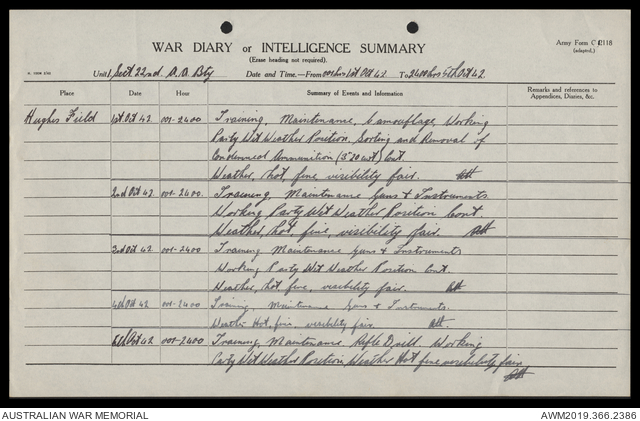 WAR DIARY or INTELLIGENCE SUMMARY
(Erase heading not required).
Army Form C 2118
(adapted.)
Unit 1 Sect 22nd A.A. Bty Date and Time.—From 001hrs 1st Oct 42 To 2400hrs 5th Oct 42
Place Date Hour Summary of Events and Information Remarks and references to Appendices, Diaries, &c.
Hughes Field 1st Oct 42 001-2400 Training, Maintenance, Camouflage, Working
Party Wet Weather Position, Sorting and Removal of
Condemned Ammunition (3" 20 cwt) Cont.
Weather, hot, fine visibility fair.
2nd Oct 42 001-2400. Training, Maintenance Guns & Instruments
Working Party Wet Weather Position Cont.
Weather, hot, fine, visibility fair.
3rd Oct 42 001-2400 Training Maintenance Guns & Instruments
Working Party Wet Weather Position Cont.
Weather, hot fine, visibility fair.
4th Oct 42 001-2400 Training Maintenance Guns & Instruments.
Weather Hot, fine, visibility fair.
5th Oct 42 001-2400 Training, Maintenance Rifle Drill. Working
Party Wet Weather Position, Weather Hot fine visibility fair
AUSTRALIAN WAR MEMORIAL AWM2019.366.2386